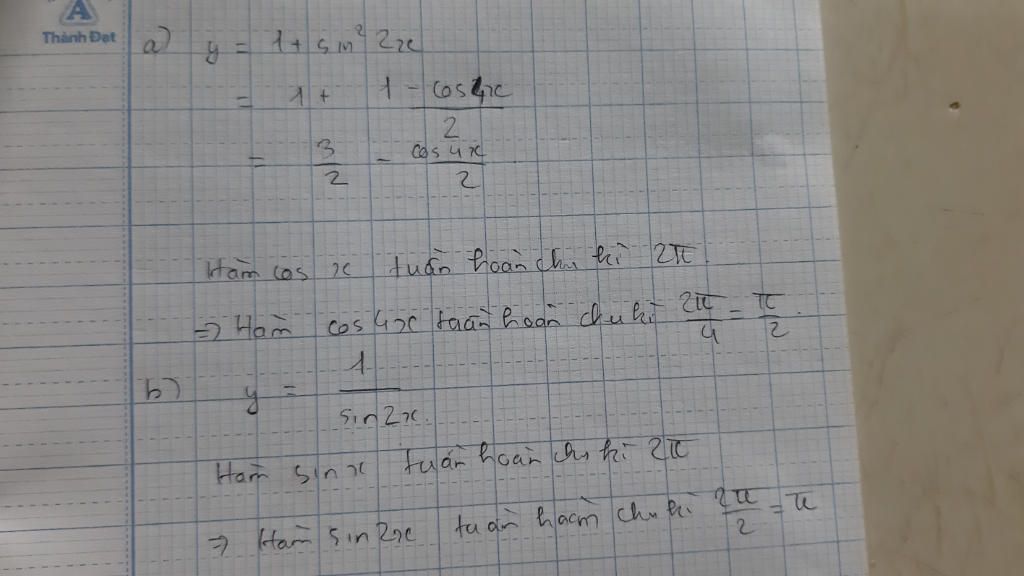 A
Thành Đạt
a) y = 1 + sin² 2x
= 1 + (1 - cos4x)/2
= 3/2 - cos4x/2
Hàm cos x tuần hoàn chu kì 2π
=> Hàm cos4x tuần hoàn chu kì 2π/4 = π/2.
b) y = 1/sin2x.
Hàm sin x tuần hoàn chu kì 2π
=> Hàm sin2x tuần hoàn chu kì 2π/2 = π